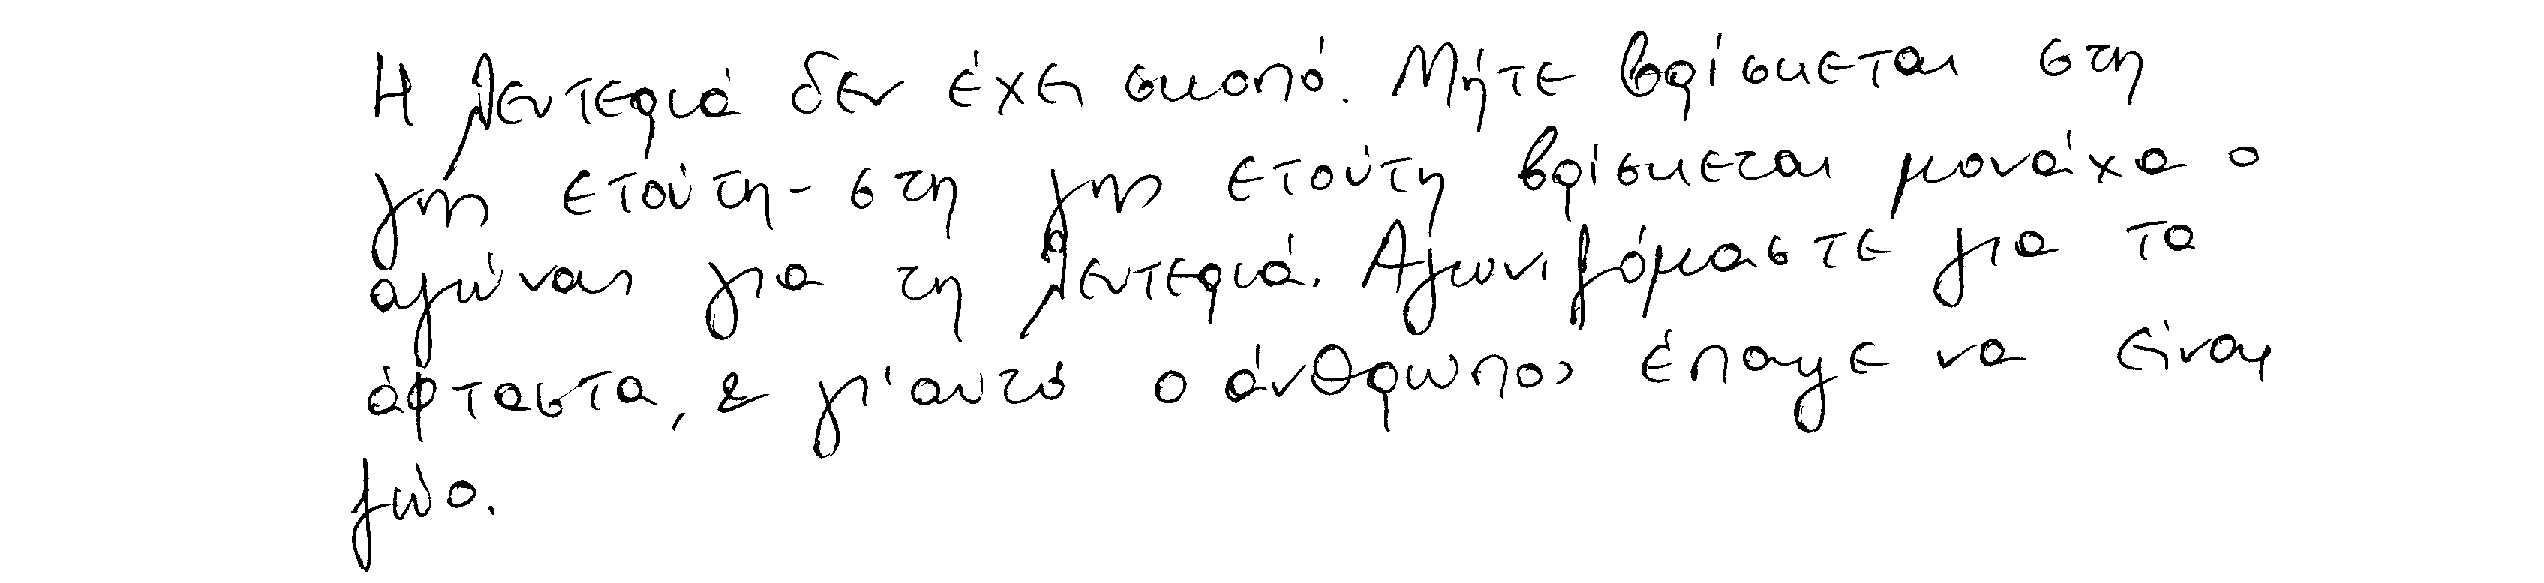 Η λευτεριά δεν έχει σκοπό. Μήτε βρίσκεται στη
γης ετούτη - στη γης ετούτη βρίσκεται μονάχα ο
αγώνας για τη λευτεριά. Αγωνιζόμαστε για τα
άφταστα, & γι'αυτό ο άνθρωπος έπαψε να είναι
ζώο.